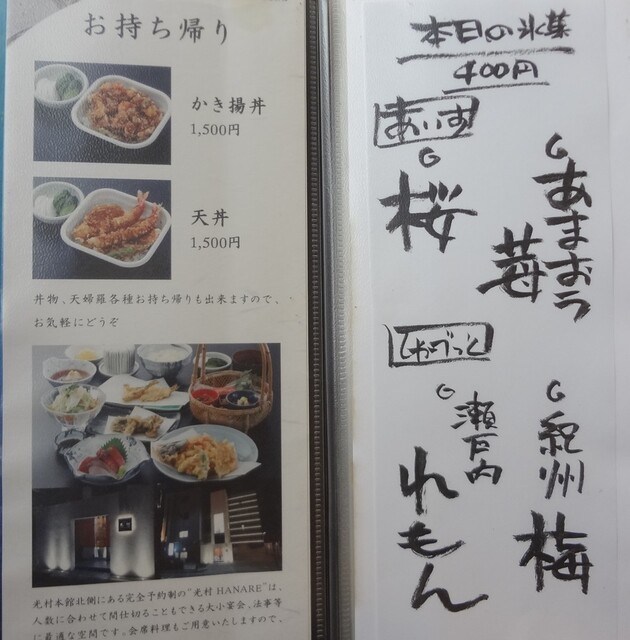 お持ち帰り
かき揚丼
1,500円
天丼
1,500円
丼物、天婦羅各種お持ち帰りも出来ますので、
お気軽にどうぞ
光村本館北側にある完全予約制の“光村 HANARE”は、
人数に合わせて間仕切ることもできる大小宴会、法事等
に最適な空間です。会席料理もご用意いたしますので、
本日の氷菓
400円
あいす
あまおう
苺
桜
しゃーべっと
紀州
梅
瀬戸内
れもん